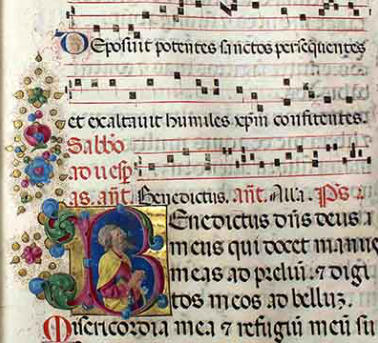 Deposuit potentes sanctos persequentes
et exaltauit humiles xp̄m confitentes.
Sabb̄o
ad uesp̄
as. an̄t. Benedictus. an̄t. All'a. Ps.
Benedictus dn̄s deus
meus qui docet manus
meas ad preliū. ⁊ digi
tos meos ad belluȝ.
Misericordia mea ⁊ refugiū meū su